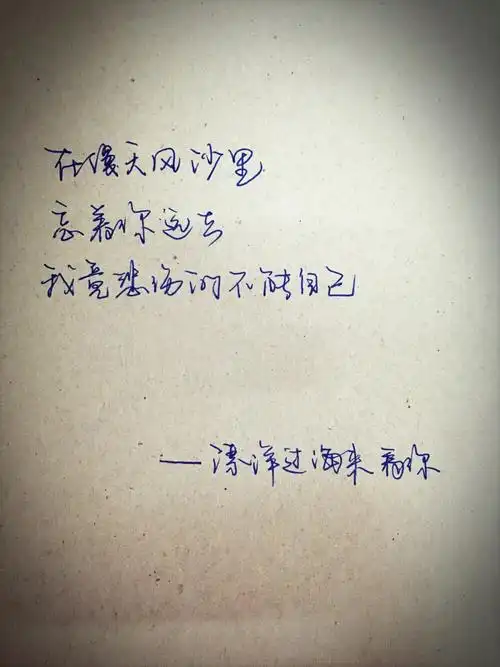 在漫天风沙里
忘着你远去
我竟悲伤的不能自己
—漂洋过海来看你